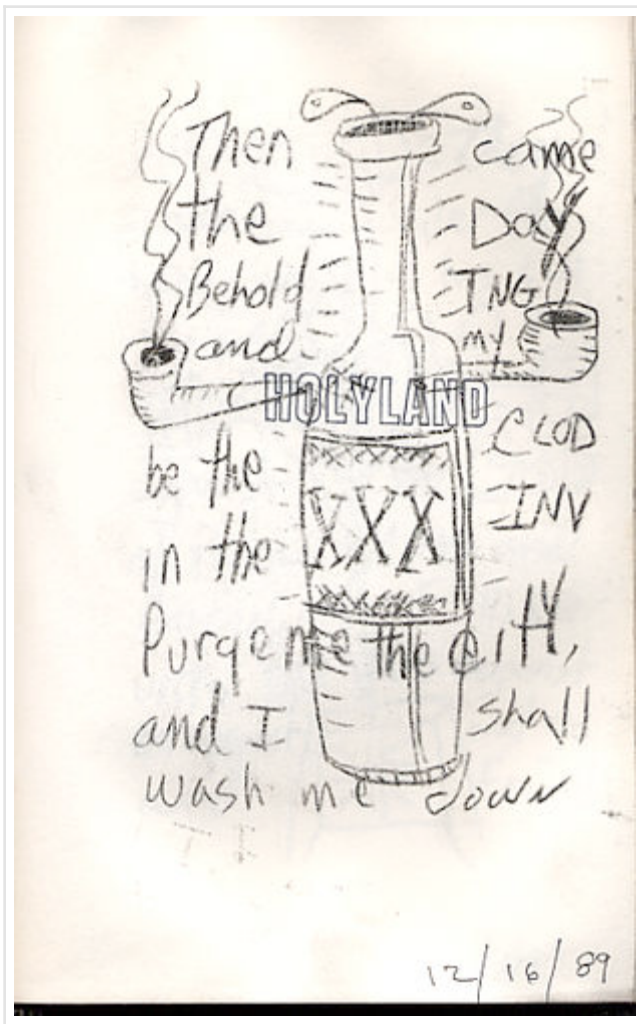 Then came
the Day
Behold TNG
and my
HOLYLAND
CLOD
be the
XXX INV
in the
Purge me the City,
and I shall
wash me down
12/16/89